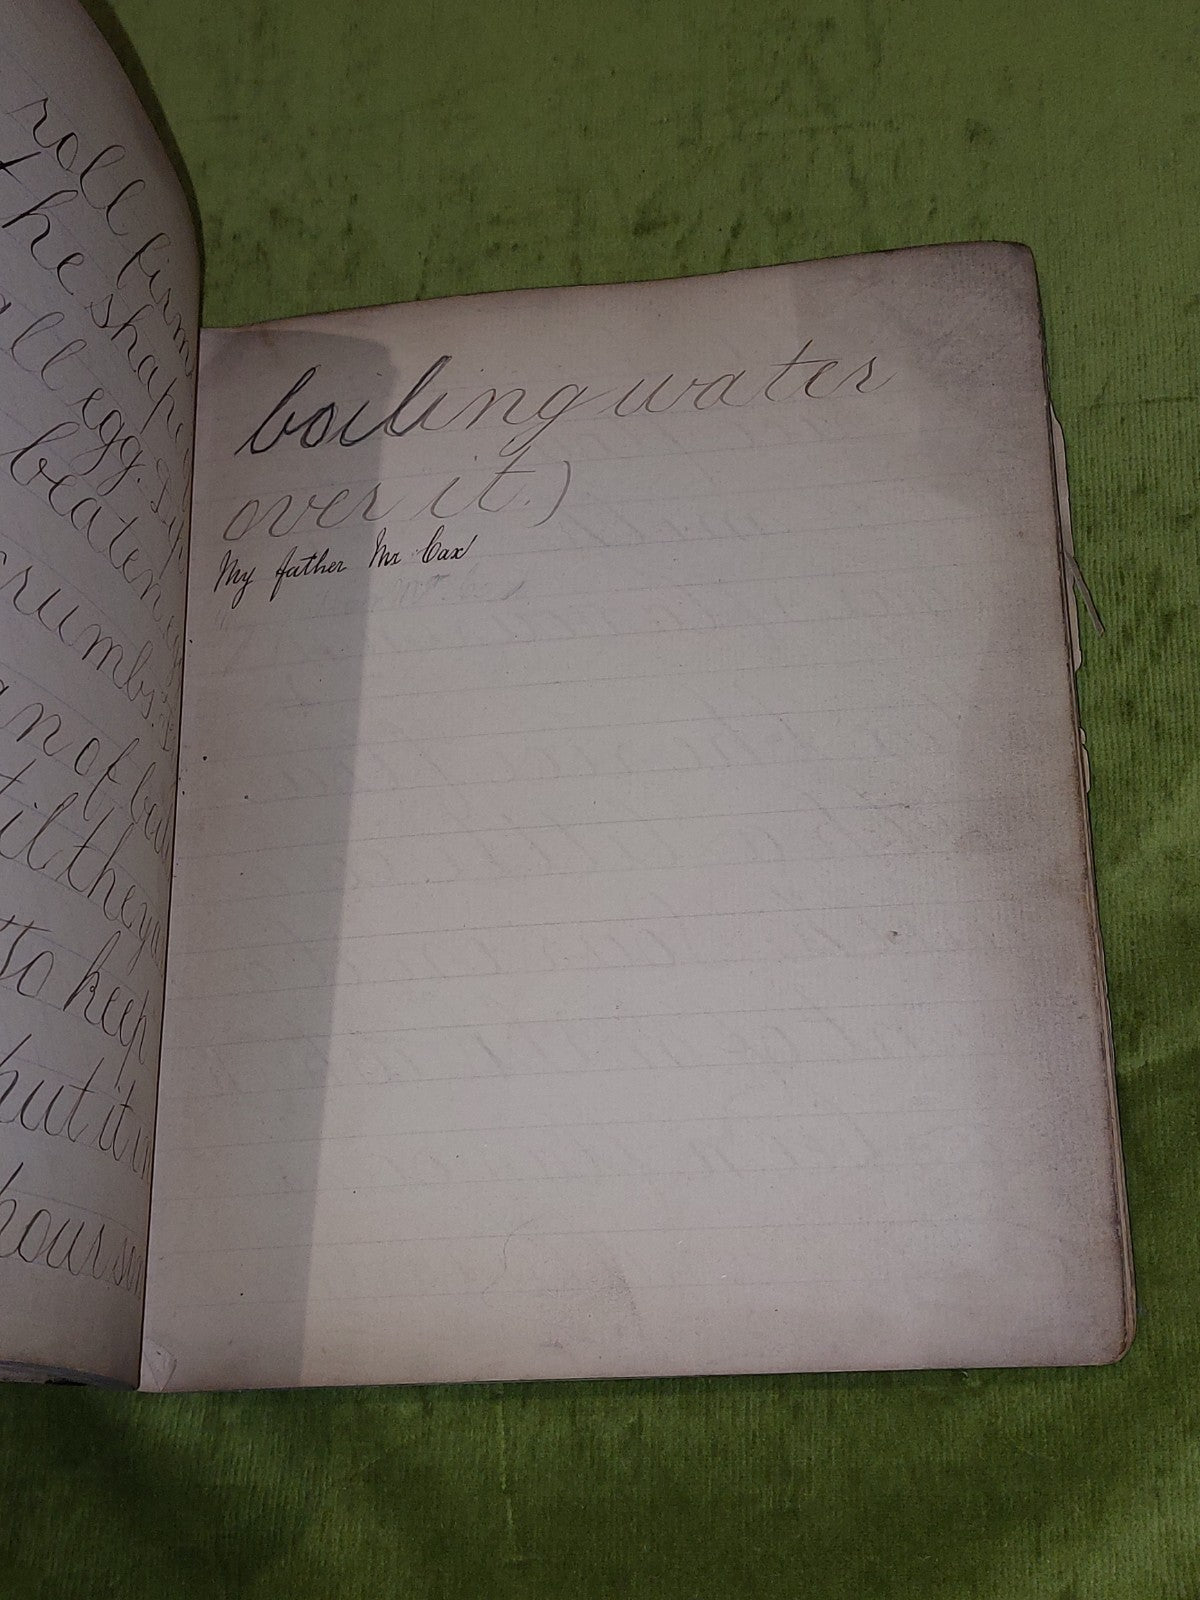 roll firm
the shape
all egg.
beaten
crumbs.
not
til they
to keep
put it in
hour
boiling water
over it.)
My father Mr Cax